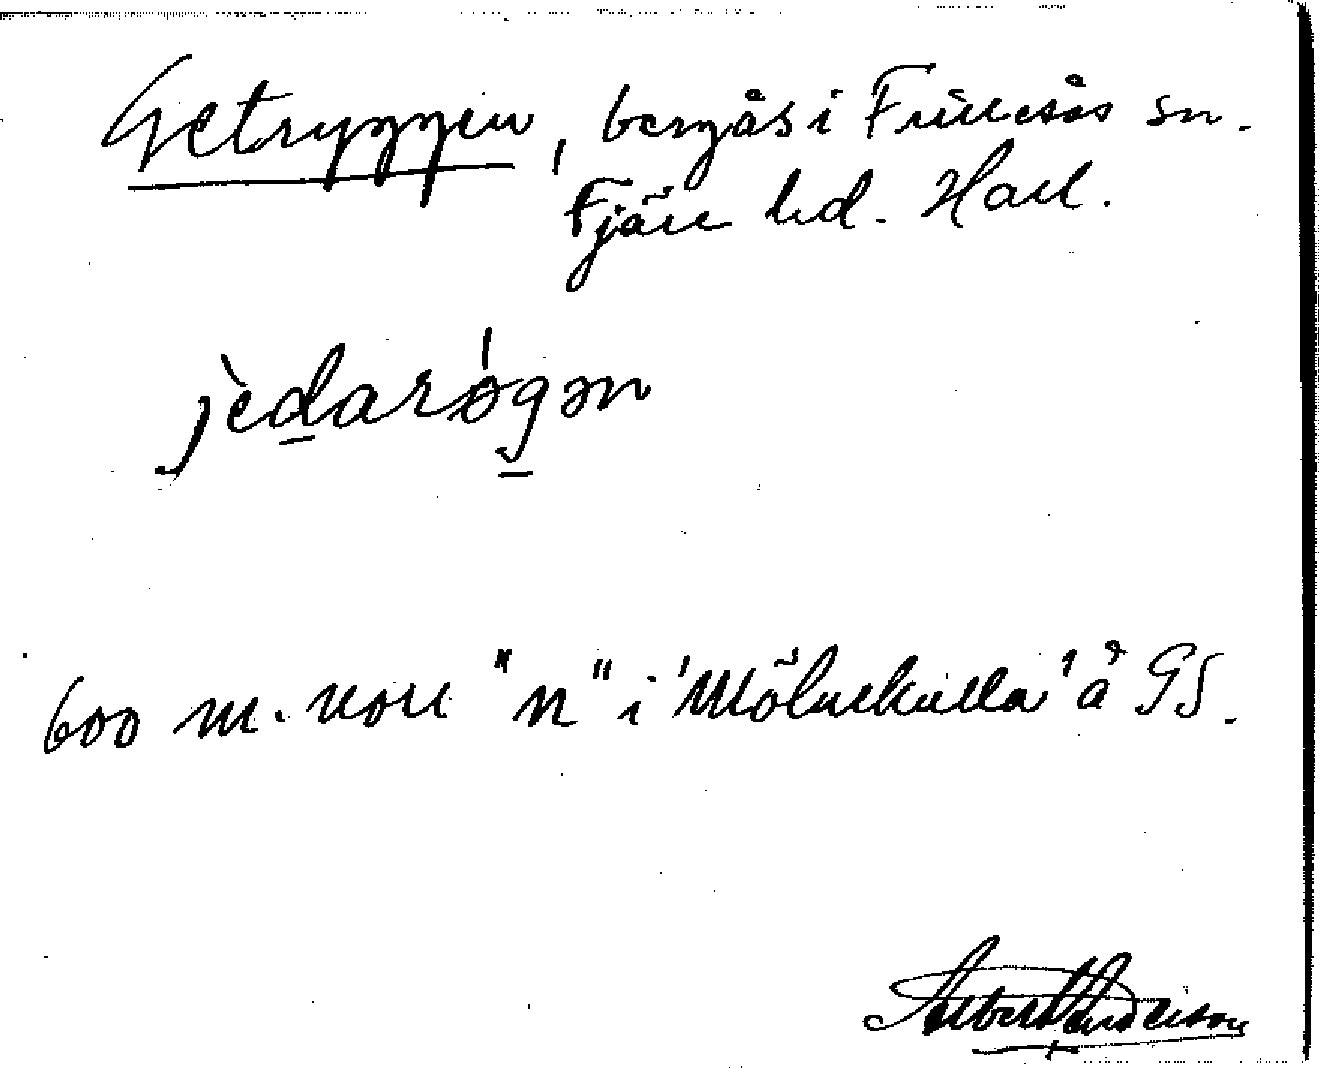 Getryggen, bergås i Frillesås sn.
Fjäre hd. Hall.
jèdarøgən
600 m. norr "n" i 'Mölnekulla' å GS.
Albert Andersson